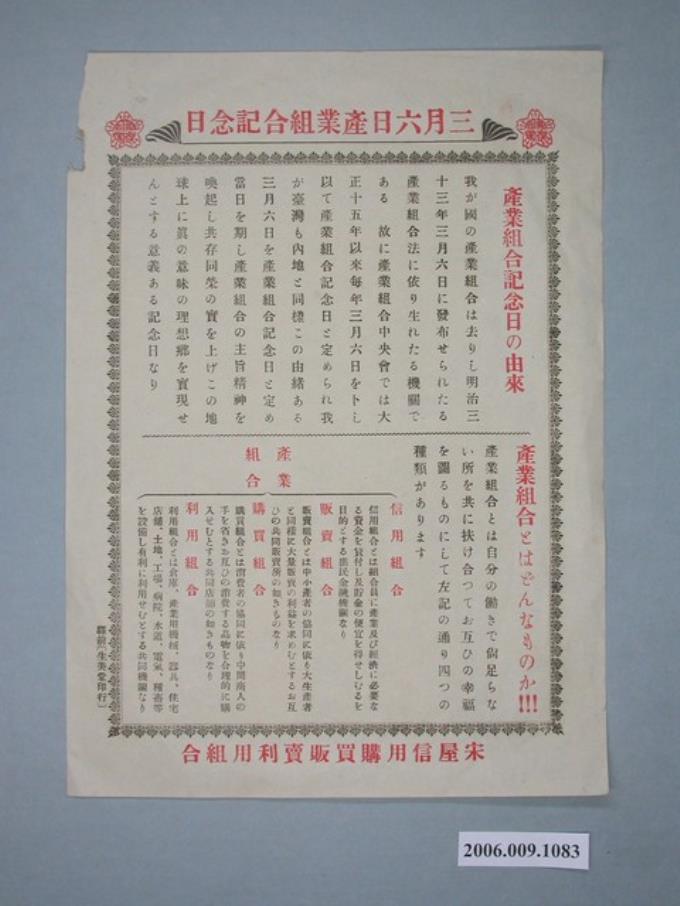 三月六日產業組合記念日
產業組合記念日の由來
我が國の產業組合は去りし明治三
十三年三月六日に發布せられたる
產業組合法に依り生れたる機關で
ある　故に產業組合中央會では大
正十五年以來每年三月六日をトし
以て產業組合記念日と定められ我
が臺灣も內地と同樣この由緖ある
三月六日を產業組合記念日と定め
當日を期し產業組合の主旨精神を
喚起し共存同榮の實を上げこの地
球上に眞の意味の理想鄕を實現せ
んとする意義ある記念日なり
產業組合とはどんなものか!!!
產業組合とは自分の働きで尙足らな
い所を共に扶け合つてお互ひの幸福
を圖るものにして左記の通り四つの
種類があります
產業
組合
信用組合
信用組合とは組合員に產業及び經濟に必要な
る資金を貸付し及貯金の便宜を得せしむるを
目的とする庶民金融機關なり
販賣組合
販賣組合とは中小產者の協同に依り大生產者
と同樣に大量販賣の利益を求めむとするお互
ひの共同販賣所の如きものなり
購買組合
購買組合とは消費者の協同に依り中間商人の
手を省きお互ひの消費する品物を合理的に購
入せむとする共同店舖の如きものなり
利用組合
利用組合とは倉庫、產業用機械、器具、住宅
店舖、土地、工場、病院、水道、電氣、種畜等
を設備し有利に利用せむとする共同機關なり
驛前 生美堂印行
宋屋信用購買販賣利用組合
2006.009.1083